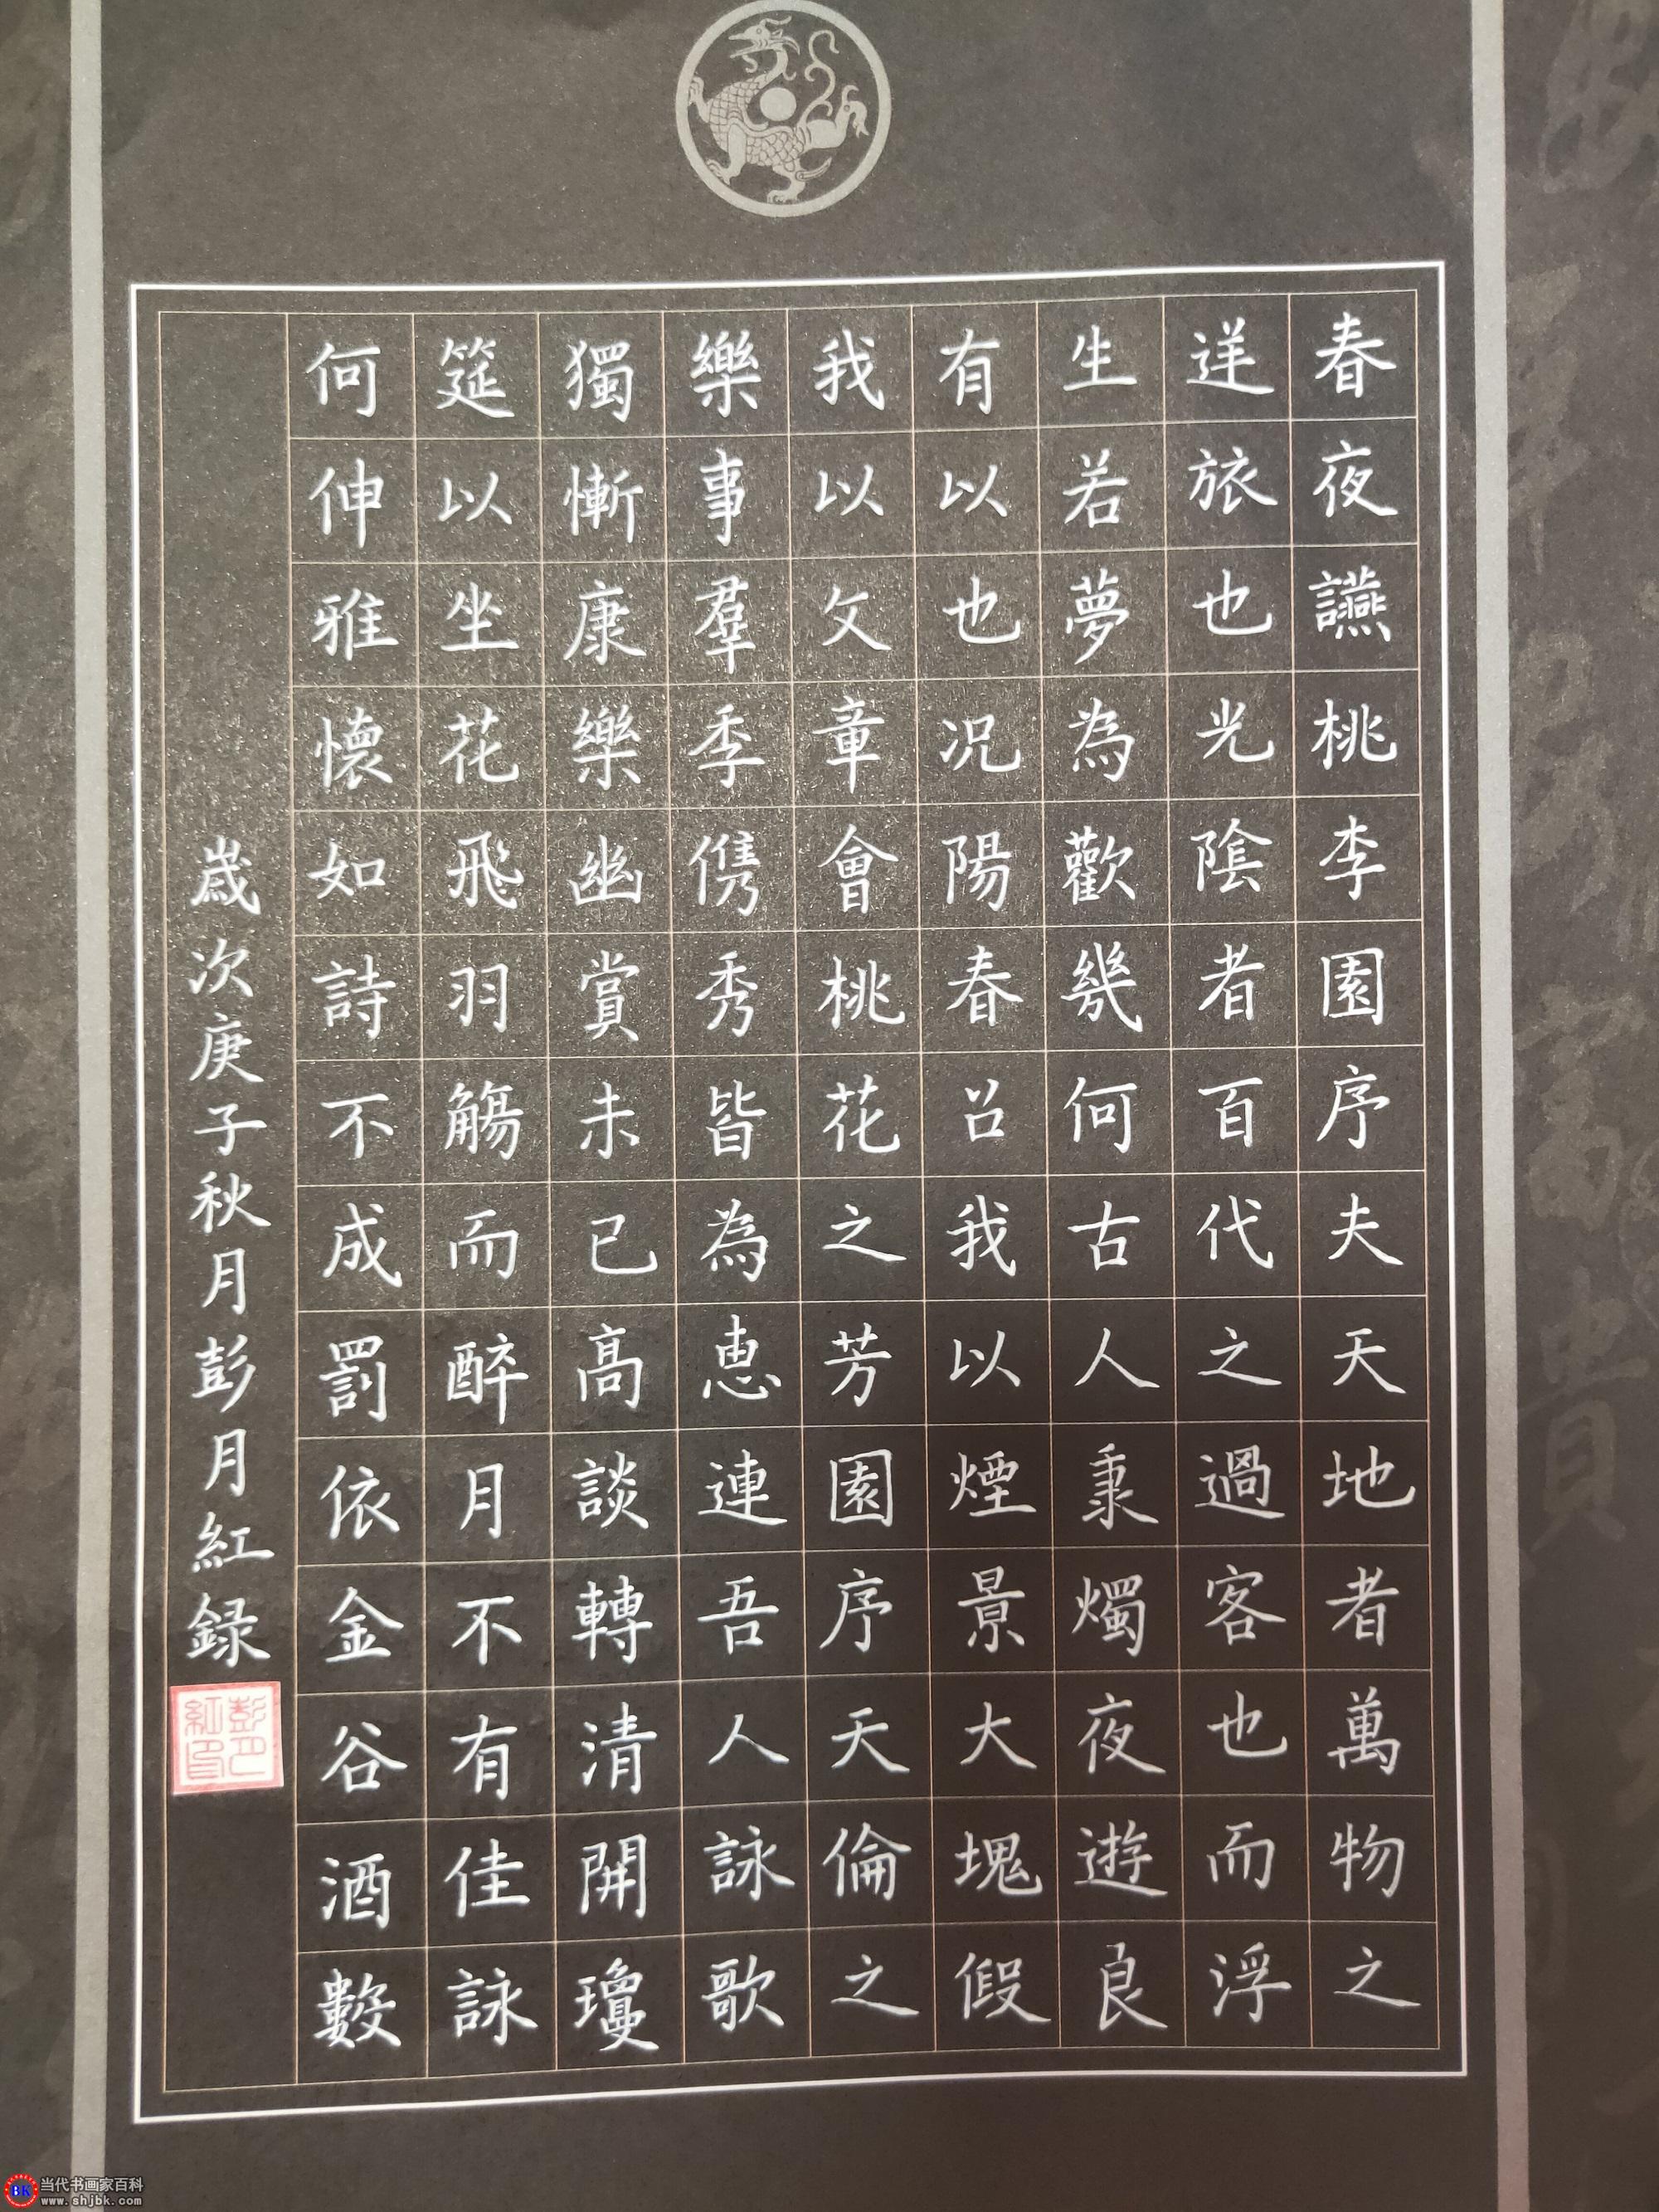 春夜讌桃李園序夫天地者萬物之
逆旅也光陰者百代之過客也而浮
生若夢為歡幾何古人秉燭夜遊良
有以也況陽春召我以煙景大塊假
我以文章會桃花之芳園序天倫之
樂事羣季儁秀皆為惠連吾人詠歌
獨慚康樂幽賞未已高談轉清開瓊
筵以坐花飛羽觴而醉月不有佳詠
何伸雅懷如詩不成罰依金谷酒數
歲次庚子秋月彭月紅録
彭月紅印
当代书画家百科
www.shjbk.com
BK